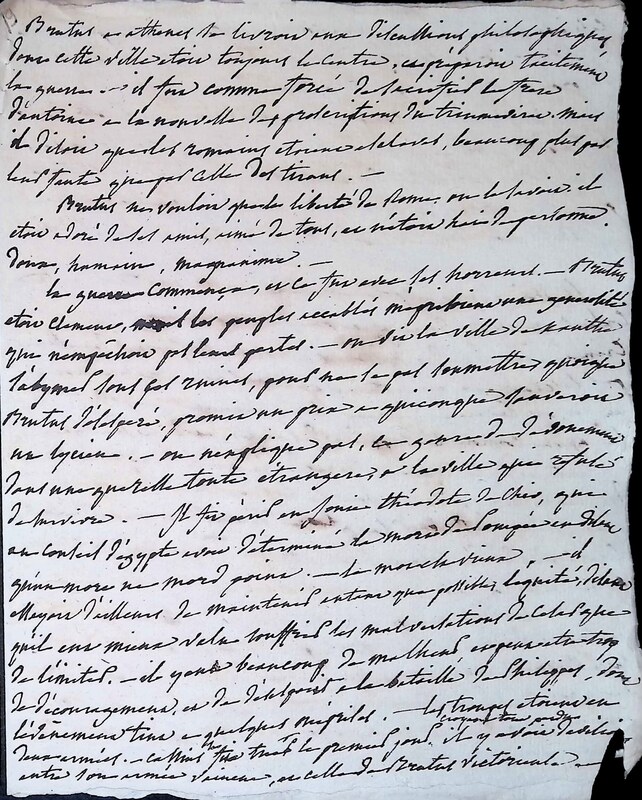 19
Brutus a athenes se livroit aux discussions philosophiques
dont cette ville etoit toujours le centre, et préparoit tacitement
la guerre — il fut comme forcé de sacrifier le frere
d'antoine a la nouvelle des proscriptions du triumvirat. mais
il disoit que les romains etoient esclaves, beaucoup plus par
leur faute que par celle des tirans. —
Brutus ne vouloit que la liberté de Rome. on le savoit. il
etoit adoré de ses amis, aimé de tous, et n'étoit hai de personne.
doux, humain, magnanime. —
la guerre commença, et ce fut avec ses horreurs. — Brutus
etoit clement, les peuples accablés meprisoient une generosité
qui n'empêchoit pas leurs pertes. — on vit la ville de Xanthe
s'abymer sous ses ruines, pour ne se pas soumettre quoique
Brutus désespéré, promit un prix a quiconque sauveroit
un lycien. — on n'explique pas, ce genre de dévouement
dans une querelle toute étrangere, a la ville qui refuse
de survivre. — Il fit périr en Ionie théodote de Chio, qui
au conseil d'égypte avoit déterminé la mort de Pompée en disant
qu'un mort ne mord point. — le mot est vieux, — il
essayoit d'ailleurs de maintenir autant que possible, l'equité, disant
qu'il eut mieux valu souffrir les malversations de Cesar que
de l'imiter. — il y eut beaucoup de malheur et peut etre trop
de découragement, et de désespoir a la bataille de Philippes. dont
l'évenement tint a quelques méprises. — les troupes etoient en
deux armées. — cassius se tua le premier jour, croyant tout perdu il y avoit
entre son armée vaincue, et celle de Brutus victorieuse —